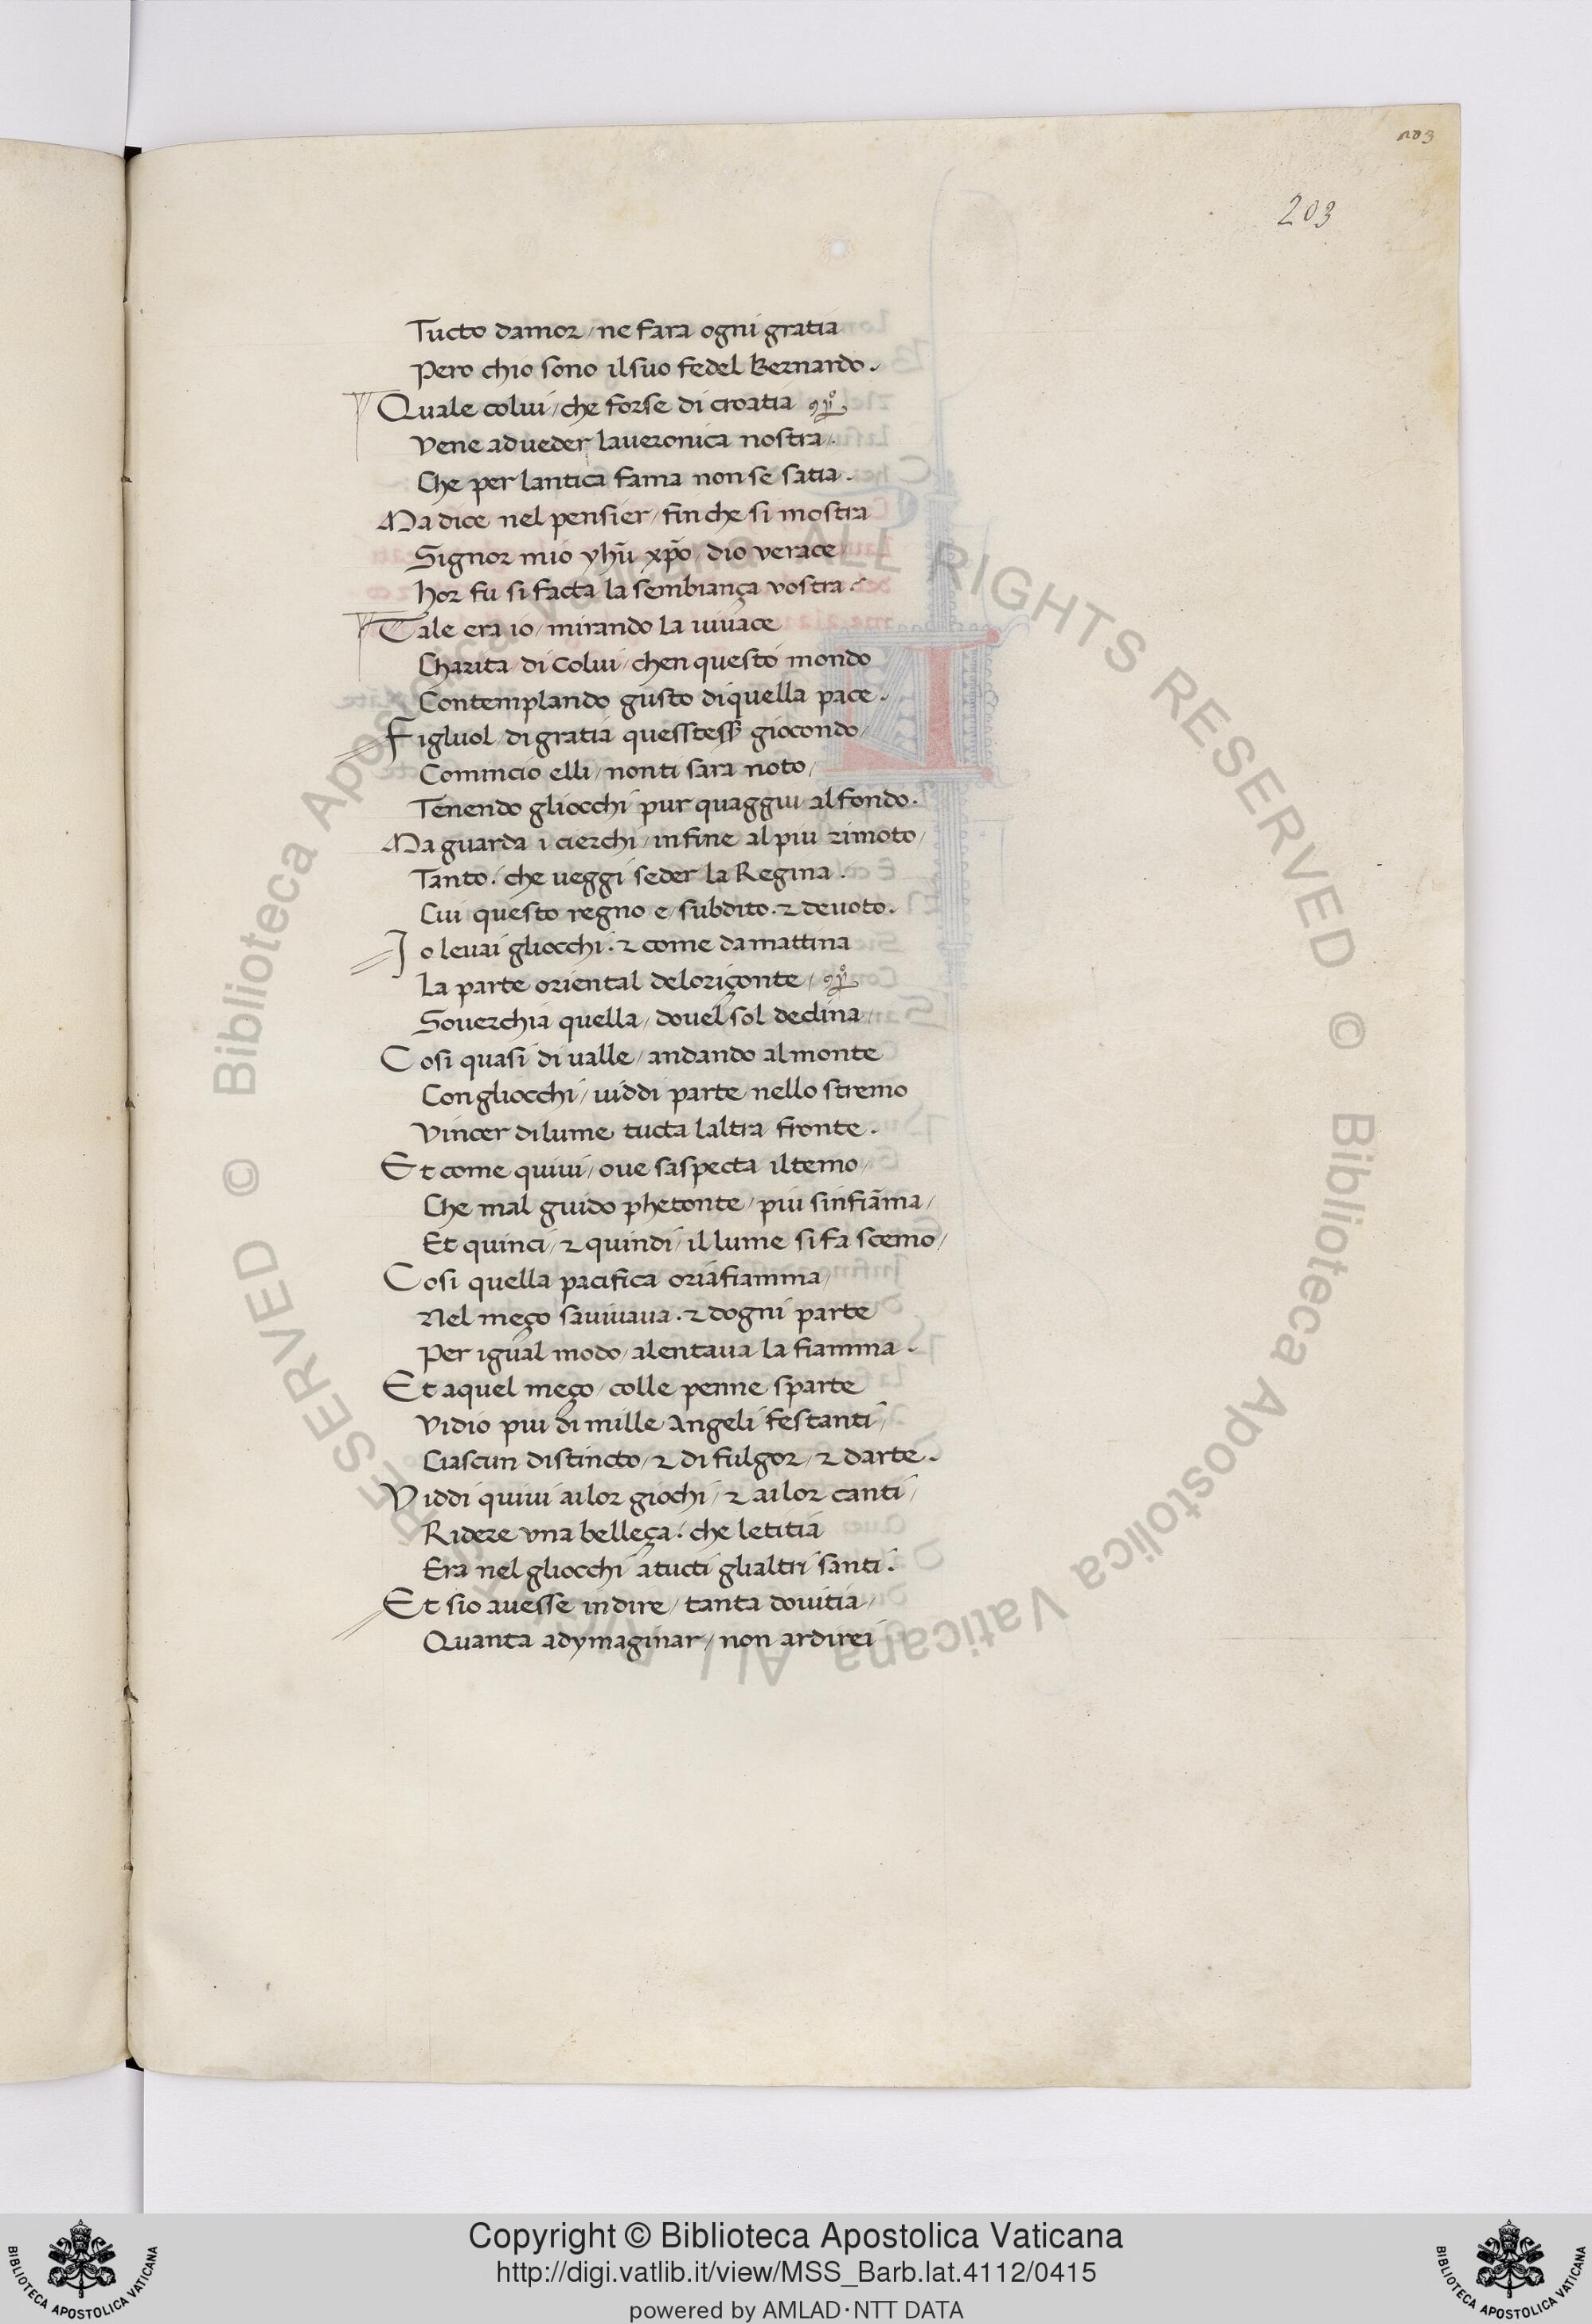 203
203
Tucto damor / ne fara ogni gratia
Pero chio sono ilsuo fedel Bernardo.
Quale colui / che forse di croatia
Vene adueder laueronica nostra /.
Che per lantica fama non se satia.
Ma dice nel pensier / fin che si mostra
Signor mio yhū xp̄o / dio verace
hor fu si facta la sembiança vostra.
Tale era io / mirando la uiuace
Charita / di colui / chen questo mondo
Contemplando gusto diquella pace.
Figluol / di gratia giocondo /
Comincio elli / nonti sara noto /
Tenendo gliocchi pur quaggiu / alfondo.
Ma guarda i cierchi / infine al piu rimoto /
Tanto. che ueggi seder la Regina.
Cui questo regno e / subdito. ⁊ deuoto.
Io leuai gliocchi. ⁊ come da mattina
La parte oriental deloriçonte /
Souerchia quella / douel sol declina /
Cosi quasi di ualle / andando almonte
Con gliocchi / uiddi parte nello stremo
Vincer dilume tucta laltra fronte.
Et come quiui / oue saspecta iltemo /
Che mal guido phetonte / piu sinfiāma /
Et quinci / ⁊ quindi / il lume si fa scemo /
Cosi quella pacifica oriafiamma /
Nel meço sauiuaua. ⁊ dogni parte
Per igual modo / alentaua la fiamma.
Et aquel meço / colle penne sparte
Vidio piu di mille Angeli festanti /
Ciascun distincto / ⁊ di fulgor / ⁊ darte.
Viddi quiui ailor giochi / ⁊ ailor canti /
Ridere vna belleça. che letitia
Era nel gliocchi atucti glialtri santi.
Et sio auesse indire / tanta douitia /
Quanta adymaginar / non ardirei
© Biblioteca Apostolica Vaticana ALL RIGHTS RESERVED © Biblioteca Apostolica Vaticana ALL RIGHTS RESERVED
Copyright © Biblioteca Apostolica Vaticana
http://digi.vatlib.it/view/MSS_Barb.lat.4112/0415
powered by AMLAD·NTT DATA
BIBLIOTECA APOSTOLICA VATICANA
BIBLIOTECA APOSTOLICA VATICANA